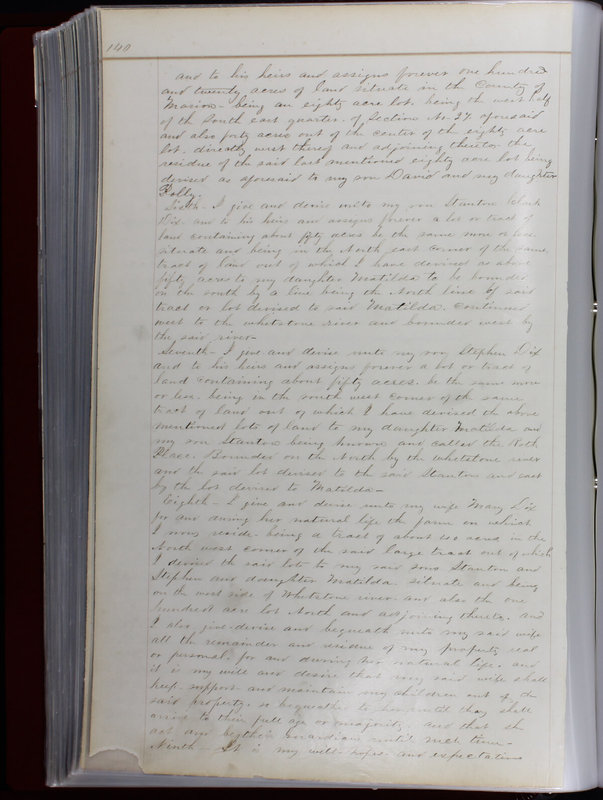 140
and to his heirs and assigns forever one hundred
and twenty acres of land situate in the County of
Marion - being an eighty acre lot. being the west half
of the South east quarter. of Section No. 27 aforesaid
and also forty acres out of the center of the eighty acre
lot. directly west thereof and adjoining thereto the
residue of the said last mentioned eighty acre lot being
devised as aforesaid to my son David and my daughter
Polly.
Sixth - I give and devise unto my son Stanton Clark
Dix. and to his heirs and assigns forever a lot or tract of
land containing about fifty acres be the same more or less
situate and being in the North east corner of the same
tract of land out of which I have devised as above
fifty acres to my daughter Matilda to be bounded
on the south by a line being the North line of said
tract or lot devised to said Matilda. Continued
west to the whetstone river and bounded west by
the said river -
Seventh - I give and devise unto my son Stephen Dix
and to his heirs and assigns forever a lot or tract of
land containing about fifty acres. be the same more
or less. being in the south west corner of the same
tract of land out of which I have devised the above
mentioned lots of land to my daughter Matilda and
my son Stanton being known and called the Roth
Place. Bounded on the North by the whetstone river
and the said lot devised to the said Stanton and east
by the lot devised to Matilda -
Eighth - I give and devise unto my wife Mary Dix
for and during her natural life the farm on which
I now reside. being a tract of about 100 acres in the
North west corner of the said large tract out of which
I devised the said lots to my said sons Stanton and
Stephen and daughter Matilda. situate and being
on the west side of Whetstone river. and also the one
hundred acre lot North and adjoining thereto. and
I also. give devise and bequeath unto my said wife
all the remainder and residue of my property real
or personal. for and during her natural life. and
it is my will and desire that my said wife shall
keep. support and maintain my children out of the
said property. so bequeathed to her until they shall
arrive to their full age or majority. and that she
act as guardian until such time -
Ninth - It is my will hopes and expectations